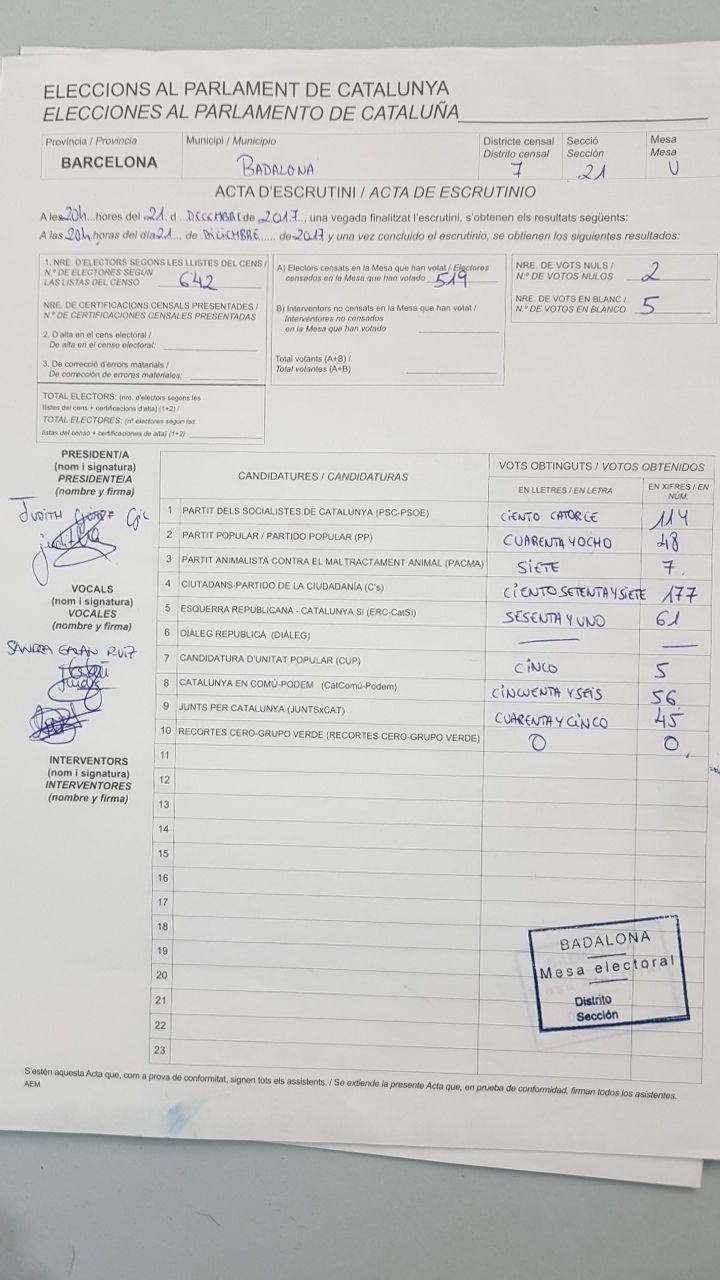 ELECCIONS AL PARLAMENT DE CATALUNYA
ELECCIONES AL PARLAMENTO DE CATALUÑA
Província / Provincia
BARCELONA
Municipi / Municipio
BADALONA
Districte censal
Distrito censal
7
Secció
Sección
21
Mesa
Mesa
U
ACTA D'ESCRUTINI / ACTA DE ESCRUTINIO
A les 20h hores del 21 d DECEMBRE de 2017, una vegada finalitzat l'escrutini, s'obtenen els resultats següents:
A las 20h horas del día 21 de DICIEMBRE de 2017 y una vez concluido el escrutinio, se obtienen los siguientes resultados:
1. NRE. D'ELECTORS SEGONS LES LLISTES DEL CENS /
N.º DE ELECTORES SEGÚN
LAS LISTAS DEL CENSO 642
NRE. DE CERTIFICACIONS CENSALS PRESENTADES /
N.º DE CERTIFICACIONES CENSALES PRESENTADAS
2. D'alta en el cens electoral /
De alta en el censo electoral:
3. De correcció d'errors materials /
De corrección de errores materiales:
TOTAL ELECTORS: (nre. d'electors segons les
llistes del cens + certificacions d'alta) (1+2) /
TOTAL ELECTORES: (nº electores según las
listas del censo + certificaciones de alta) (1+2)
A) Electors censats en la Mesa que han votat / Electores
censados en la Mesa que han votado 519
B) Interventors no censats en la Mesa que han votat /
Interventores no censados
en la Mesa que han votado
Total votants (A+B) /
Total votantes (A+B)
NRE. DE VOTS NULS /
N.º DE VOTOS NULOS 2
NRE. DE VOTS EN BLANC /
N.º DE VOTOS EN BLANCO 5
PRESIDENT/A
(nom i signatura)
PRESIDENTE/A
(nombre y firma)
JUDITH
VOCALS
(nom i signatura)
VOCALES
(nombre y firma)
SANDRA GALAN RUIZ
INTERVENTORS
(nom i signatura)
INTERVENTORES
(nombre y firma)
CANDIDATURES / CANDIDATURAS
VOTS OBTINGUTS / VOTOS OBTENIDOS
EN LLETRES / EN LETRA
EN XIFRES / EN NÚM.
1 PARTIT DELS SOCIALISTES DE CATALUNYA (PSC-PSOE) CIENTO CATORCE 114
2 PARTIT POPULAR / PARTIDO POPULAR (PP) CUARENTA Y OCHO 48
3 PARTIT ANIMALISTA CONTRA EL MALTRACTAMENT ANIMAL (PACMA) SIETE 7.
4 CIUTADANS-PARTIDO DE LA CIUDADANÍA (C's) CIENTO SETENTA Y SIETE 177
5 ESQUERRA REPUBLICANA - CATALUNYA SÍ (ERC-CatSí) SESENTA Y UNO 61
6 DIÀLEG REPUBLICÀ (DIÀLEG) — —
7 CANDIDATURA D'UNITAT POPULAR (CUP) CINCO 5
8 CATALUNYA EN COMÚ-PODEM (CatComú-Podem) CINCUENTA Y SEIS 56
9 JUNTS PER CATALUNYA (JUNTSxCAT) CUARENTA Y CINCO 45
10 RECORTES CERO-GRUPO VERDE (RECORTES CERO-GRUPO VERDE) 0 0
11
12
13
14
15
16
17
18
19
20
21
22
23
BADALONA
Mesa electoral
Distrito
Sección
S'estén aquesta Acta que, com a prova de conformitat, signen tots els assistents. / Se extiende la presente Acta que, en prueba de conformidad, firman todos los asistentes.
AEM